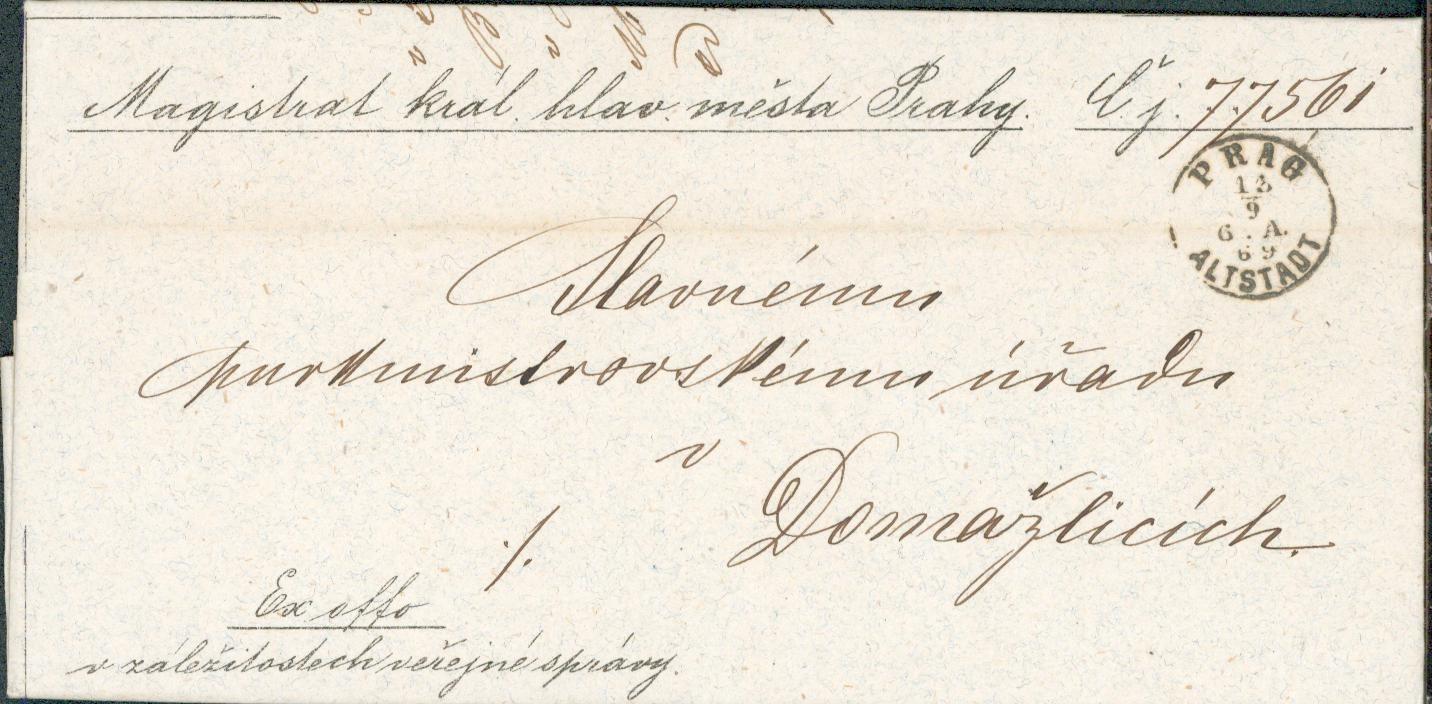 Magistrat král. hlav. města Prahy. Č. j. 77561
PRAG
13
9
6 . A.
69
ALTSTADT
Slavnému
purkmistrovskému úřadu
v
Domažlicích.
./.
Ex offo
v záležitostech veřejné správy.